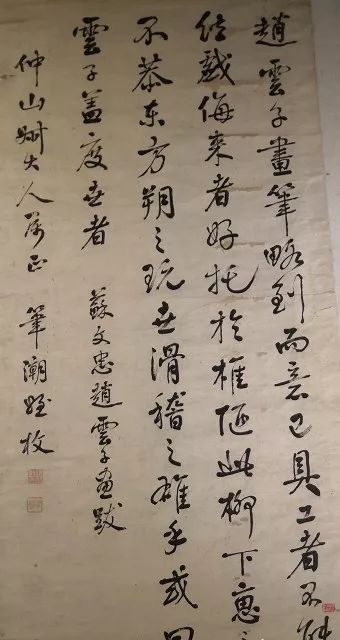 趙雲子畫筆略到而意已具工者不能
戲侮來者好托於椎陋此柳下惠之
不恭東方朔之玩世滑稽之雄乎或曰
雲子蓋度世者 蘇文忠趙雲子畫跋
仲山大人屬正 筆潮姪枚